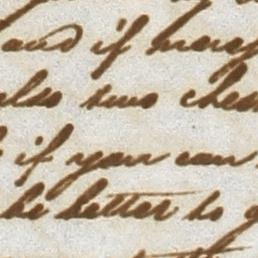 and if
also two
if you can
be better to